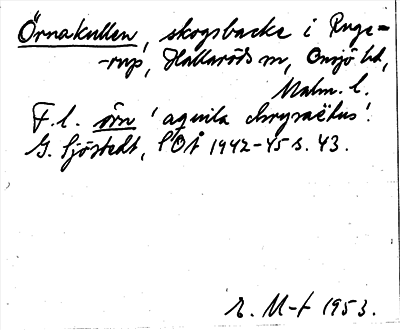 Örnakullen, skogsbacke i Ruge=
-rup, Hallaröds sn, Onsjö hd,
Malm. l.
F.l. örn 'aquila chrysaëtus'.
G. Sjöstedt, SOÅ 1942-45 s. 43.
E. M-t 1953.